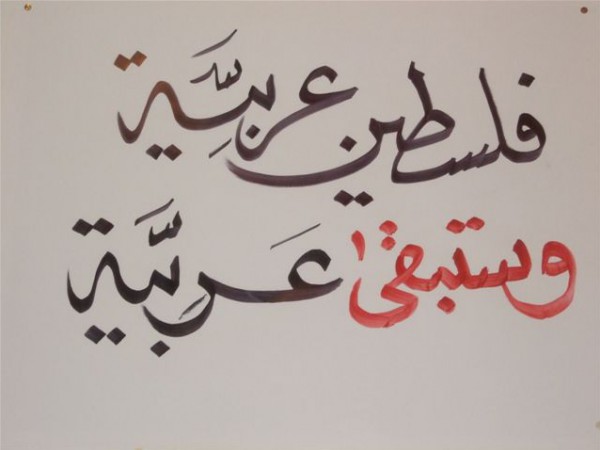 فلسطين عربيَّة
وستبقىٰ عَربيَّة